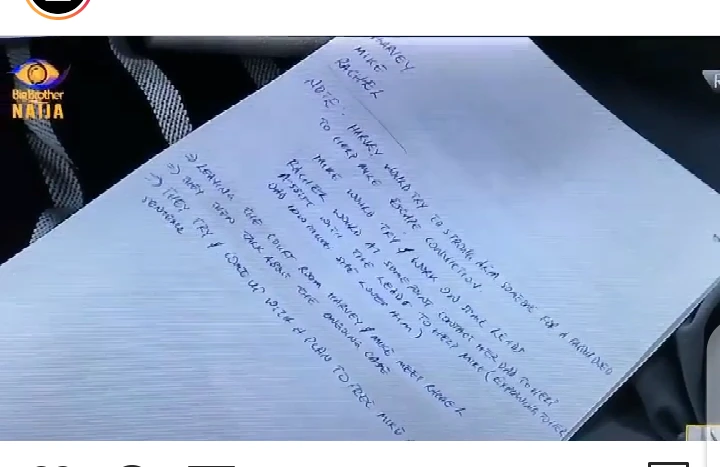 BigBrother
NAIJA
HARVEY
MIKE
RACHEL
NOTE: HARVEY WOULD TRY TO STRONG ARM SOMEONE FOR A
TO HELP MIKE ESCAPE CONVICTION.
MIKE WOULD TRY & WORK ON SOME LEADS
RACHEL WOULD AT SOME POINT CONTACT HER DAD TO HELP
ASSIST WITH THE LEADS TO HELP MIKE (EXPRESSING TO HER
DAD HOW MUCH SHE LOVES HIM)
⇒ LEAVING THE COURT ROOM HARVEY & MIKE MEET RACHEL
⇒ THEY THEN TALK ABOUT THE ONGOING CASE
⇒ THEY TRY & COME UP WITH A PLAN TO FREE MIKE